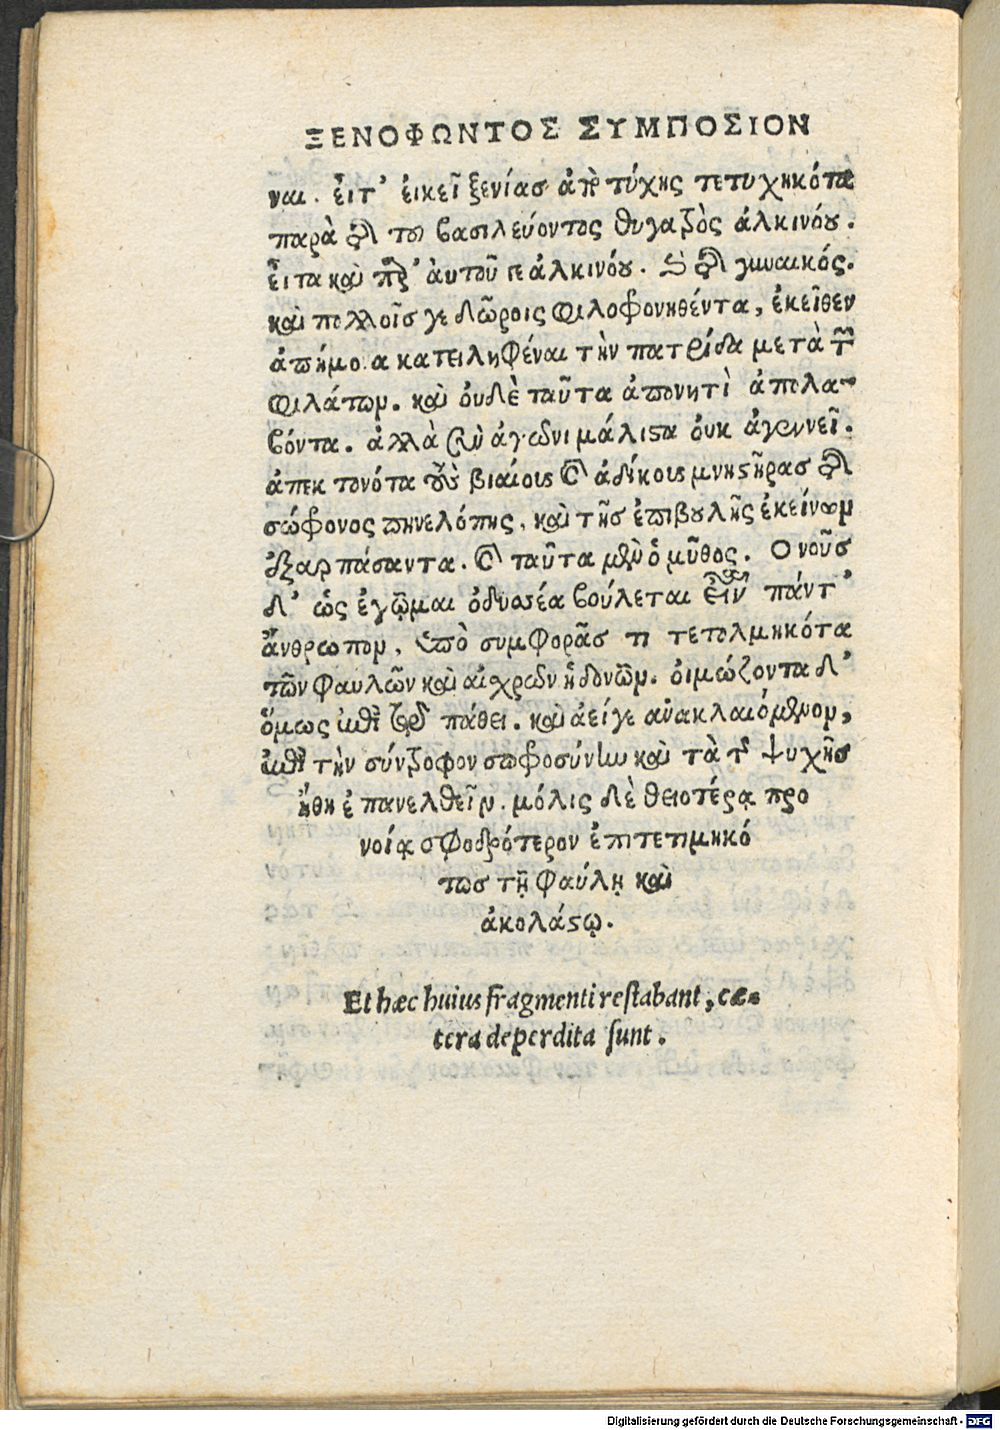 ΞΕΝΟΦΩΝΤΟΣ ΣΥΜΠΟΣΙΟΝ
ναι. εἶτ᾽ ἐκεῖ ξενίας ἀπὸ τύχης τετυχηκότα
παρὰ τε τοῦ βασιλεύοντος θυγατρὸς ἀλκινόου.
εἶτα καὶ παρ᾽ ἀυτοῦ γε ἀλκινόου. καὶ τῆς γυναικός.
καὶ πολλοῖς γε δώροις φιλοφονηθέντα, ἐκεῖθεν
ἀπήμονα κατειληφέναι τὴν πατρίδα μετὰ τῶν
φιλάτων. καὶ ὀυδὲ ταῦτα ἀπονητὶ ἀπολα-
βόντα. ἀλλὰ σὺν ἀγῶνι μάλιστα ὀυκ ἀγεννεῖ.
ἀπεκτονότα τοὺς βιαίους καὶ ἀδίκους μνηστῆρας τῆς
σώφονος πηνελόπης, καὶ τῆς ἐπιβουλῆς ἐκείνων
ἐξαρπάσαντα. καὶ ταῦτα μὲν ὁ μῦθος. Ο νοῦς
δ᾽ ὡς ἐγῷμαι ὀδυσσέα βούλεται εἶναι πάντ᾽
ἄνθρωπον, ὑπὸ συμφορᾶς τι τετολμηκότα
τῶν φαυλῶν καὶ αἰχρῶν ἡδονῶν. ὀιμώζοντα δ᾽
ὅμως ἐπὶ τῷ πάθει. καὶ ἀείγε ἀνακλαιόμενον,
ἐπὶ τὴν σύντροφον σωφοσύνην καὶ τὰ τῆς ψυχῆς
ἤθη ἐπανελθεῖν. μόλις δὲ θειοτέρᾳ προ
νοίᾳ σφοδρότερον ἐπιτετιμηκό
τως τῇ φαύλῃ καὶ
ἀκολάστῳ.
Et hæc huius fragmenti restabant, cæ-
tera deperdita sunt.
Digitalisierung gefördert durch die Deutsche Forschungsgemeinschaft - DFG